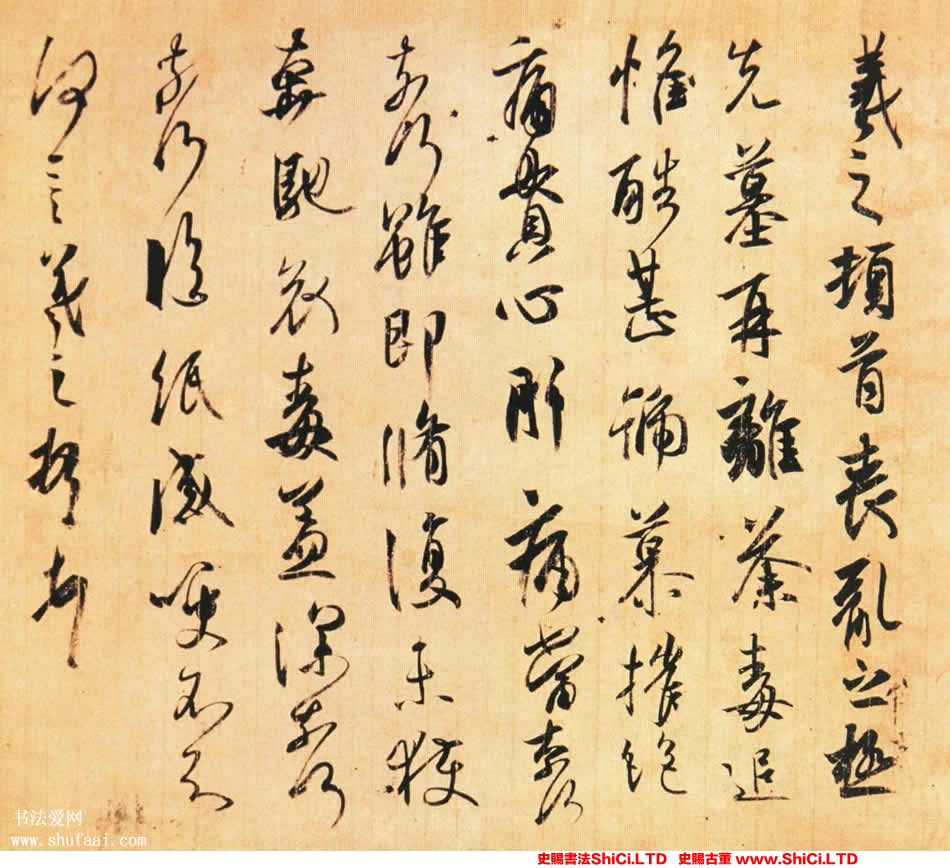 羲之頓首喪亂之極
先墓再離荼毒追
惟酷甚號慕摧絕
痛貫心肝痛當奈何
奈何雖即脩復未獲
奔馳哀毒益深奈何
奈何臨紙感哽不知
何言羲之頓首頓首
书法爱网
www.shufaai.com
史賜書法ShiCi.LTD 史賜古董 www.ShiCi.LTD